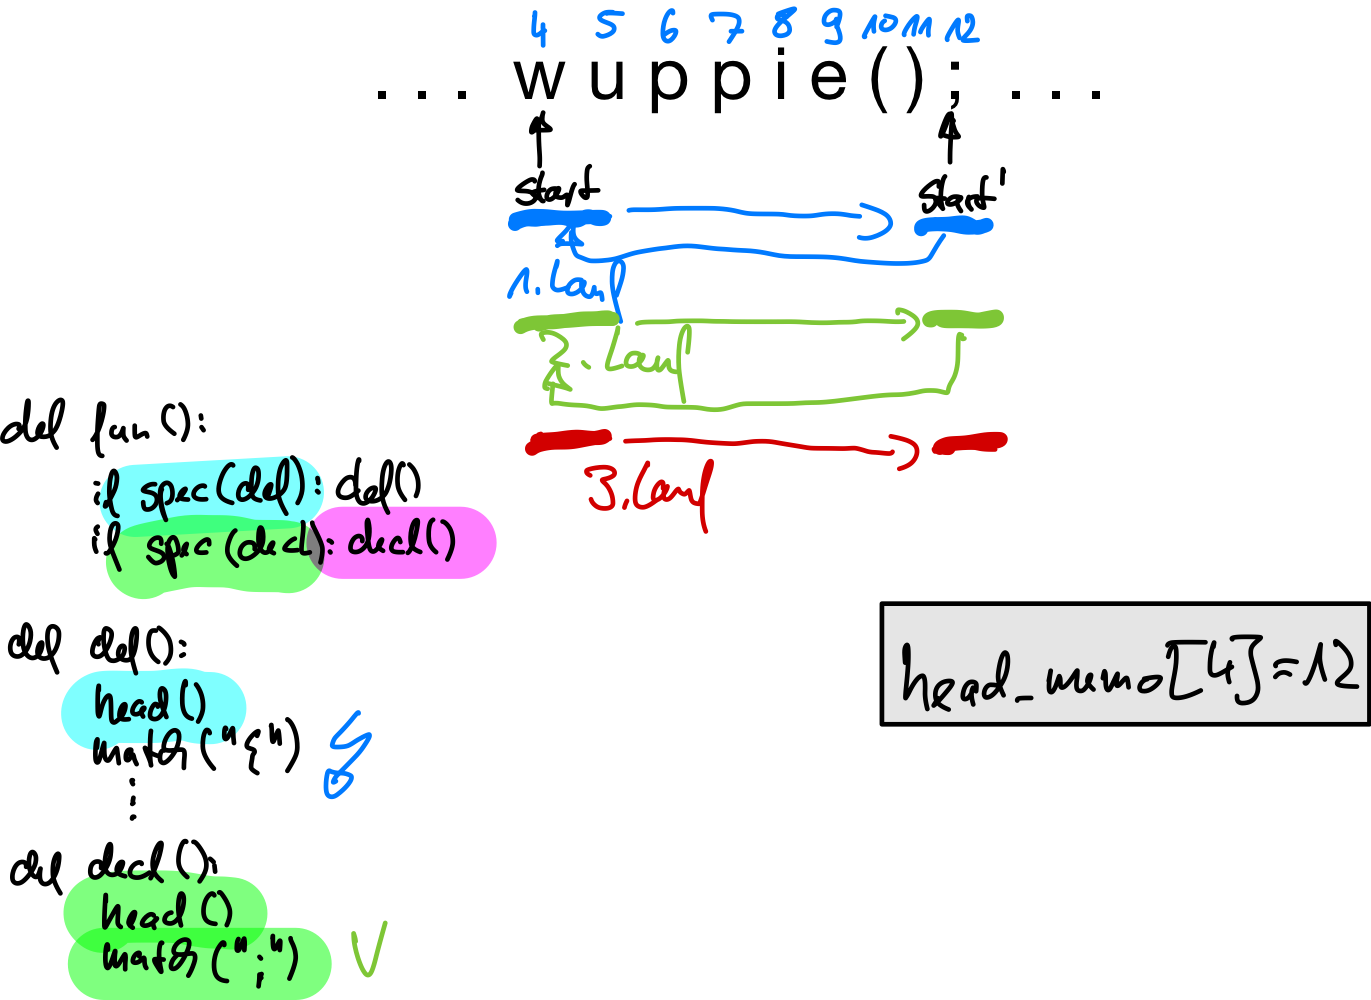 4 5 6 7 8 9 10 11 12
... w u p p i e ( ) ; ...
start start'
1. Lauf
2. Lauf
3. Lauf
def fun():
if spec(def): def()
if spec(decl): decl()
def def():
head()
match("{")
⋮
def decl():
head()
match(";")
head_memo[4]=12